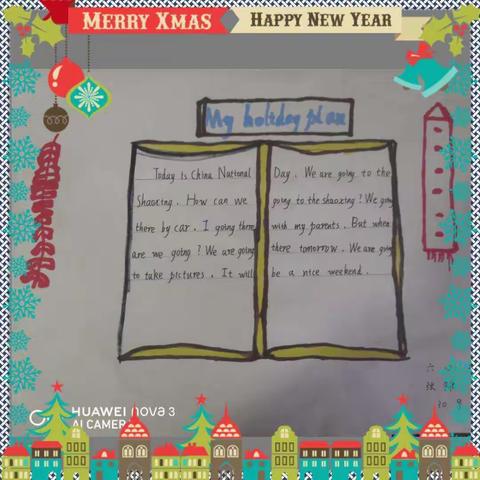 MERRY XMAS HAPPY NEW YEAR
My holiday plan
Today is China National Day. We are going to the
Shaoxing. How can we going to the shaoxing? We going
there by car. I going there with my parents. But when
are we going? We are going there tomorrow. We are going
to take pictures. It will be a nice weekend.
六
张
HUAWEI nova 3
AI CAMERA